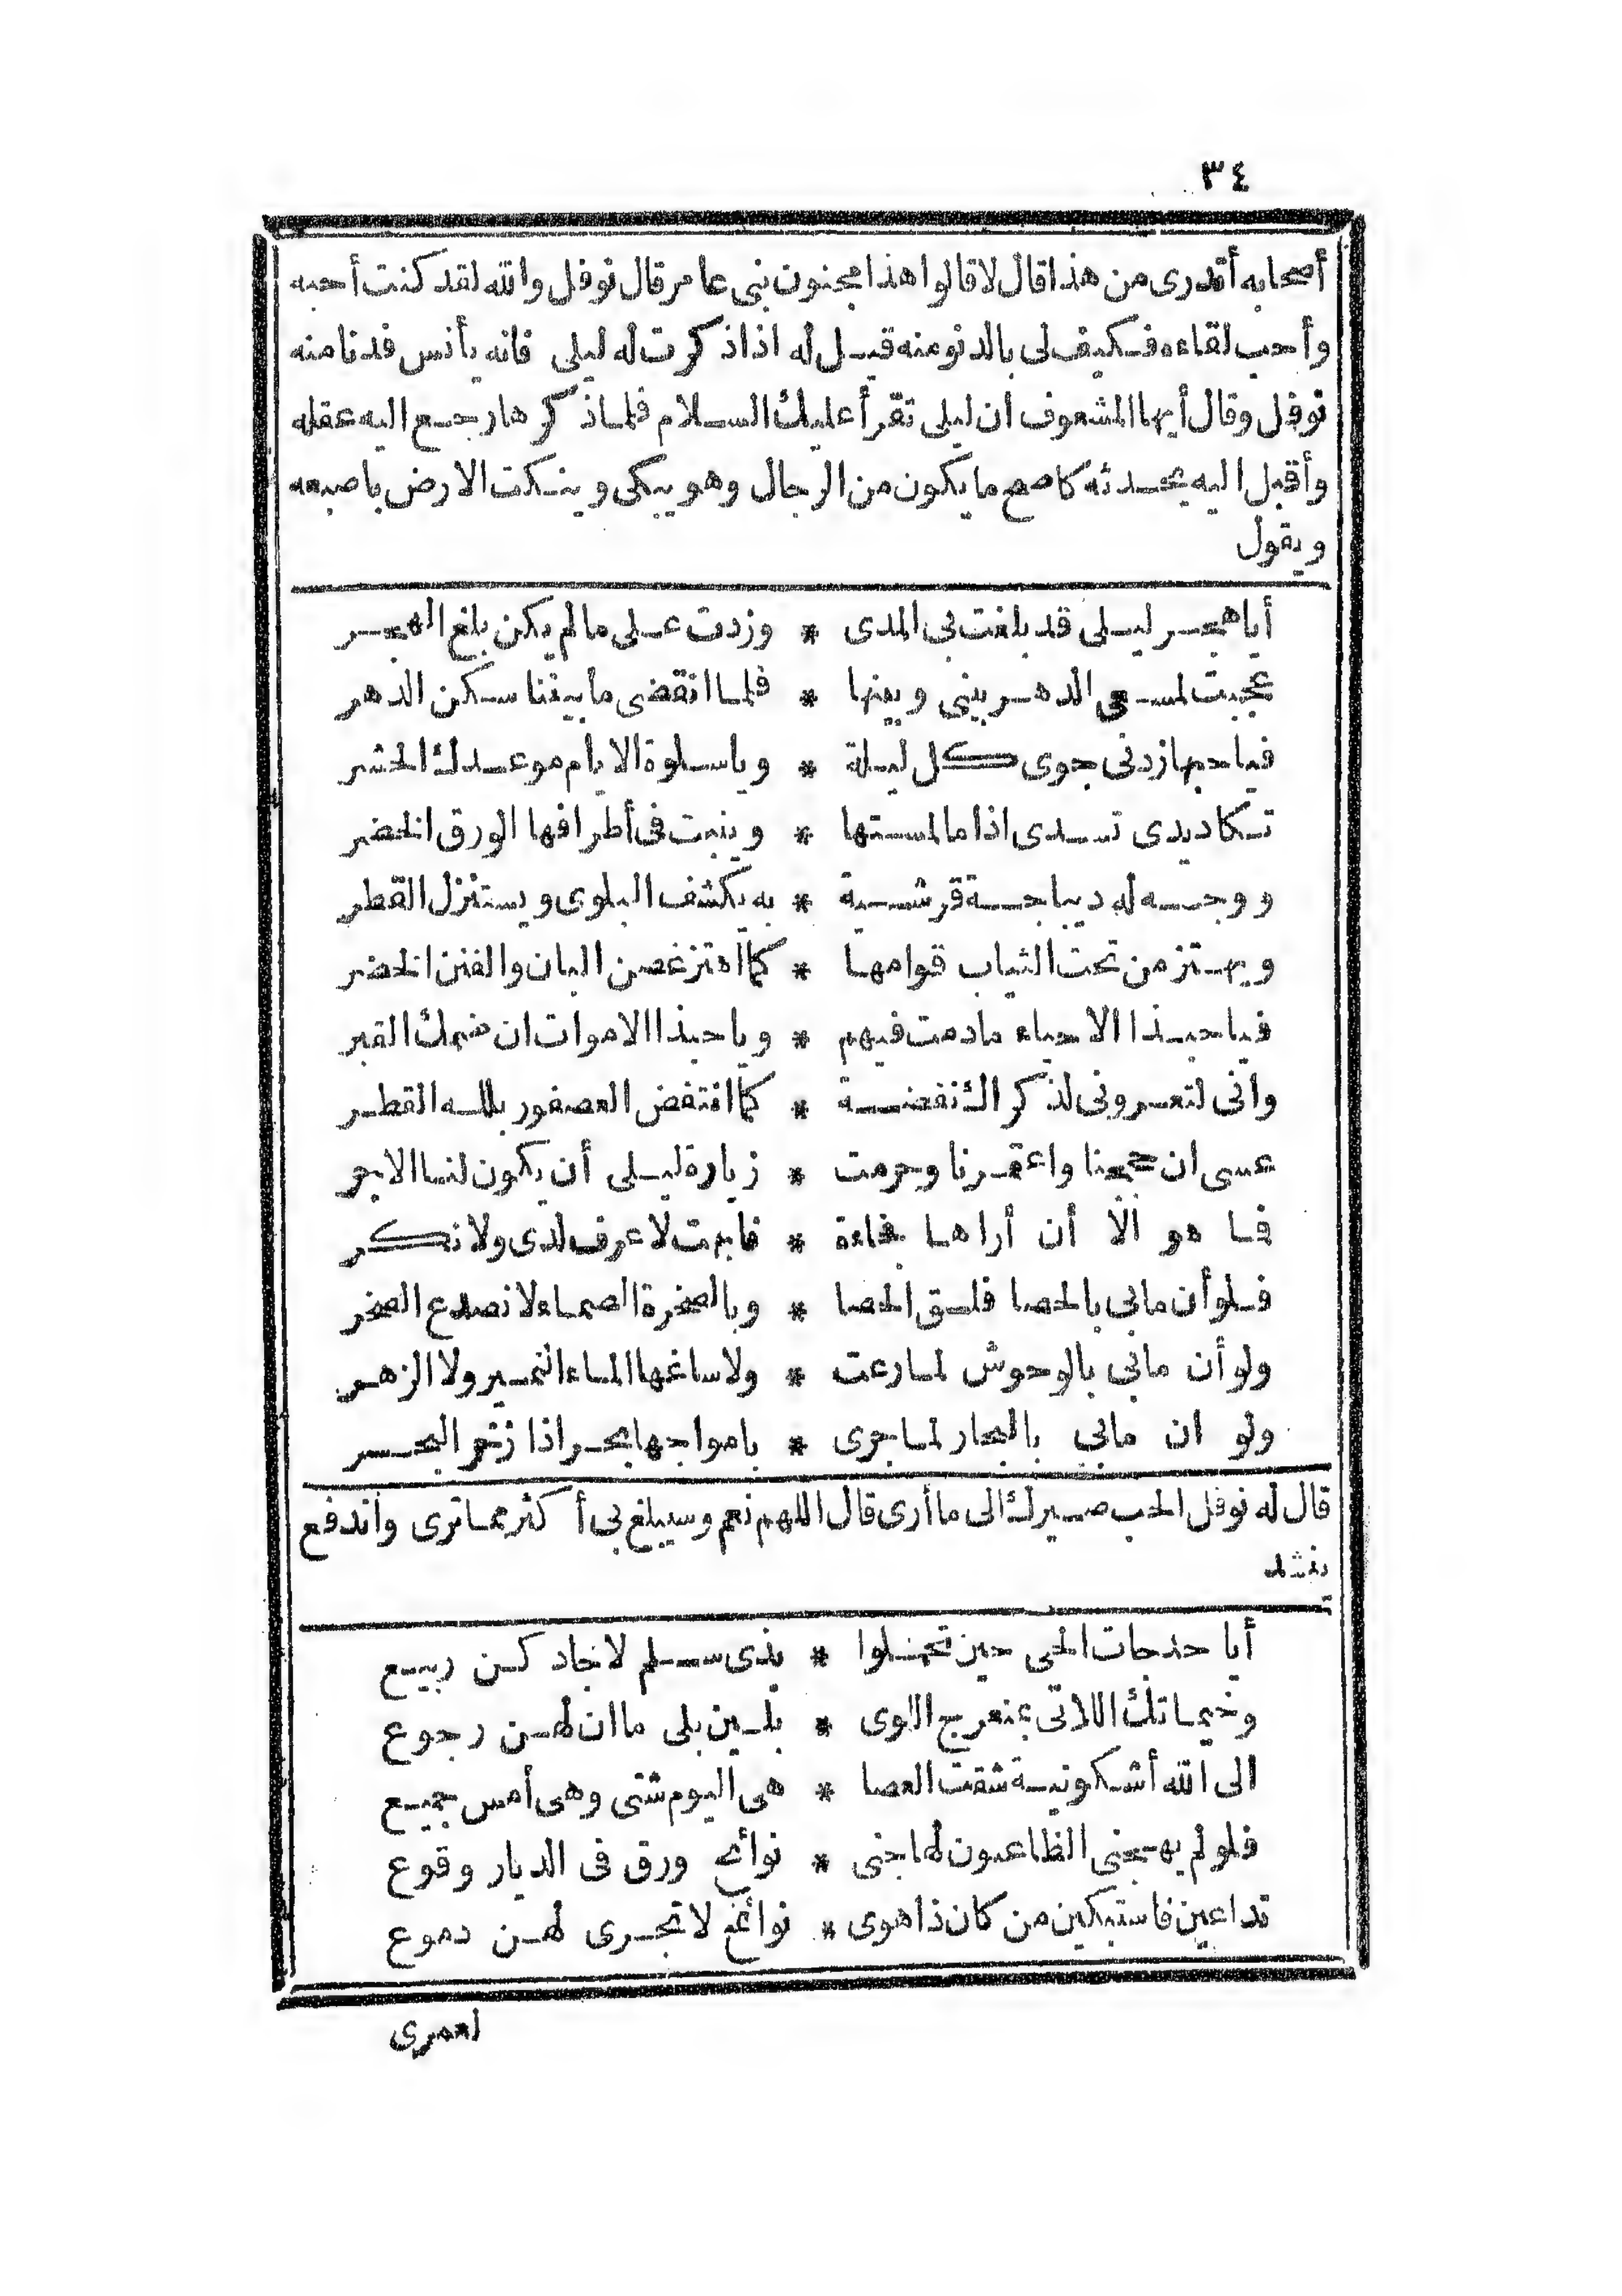 ٣٤
أصحابه أتدرى من هذا قال لا قالوا هذا مجنون بنى عامر قال نوفل والله لقد كنت أحبه
وأحب لقاءه فكيف لى بالدنو منه قيل له اذا ذكرت له ليلى فانه يأنس فدنا منه
نوفل وقال أيها المشعوف ان ليلى تقرأ عليك السلام فلما ذكرها رجع اليه عقله
وأقبل اليه يحدثه كاصح ما يكون من الرجال وهو يبكى وينكت الارض باصبعه
ويقول
أيا هجر ليلى قد بلغت بى المدى * وزدت على ما لم يكن بلغ الهجر
عجبت لسعى الدهر بينى وبينها * فلما انقضى ما بيننا سكن الدهر
فيا حبها زدنى جوى كل ليلة * ويا سلوة الايام موعدك الحشر
تكاد يدى تندى اذا ما لمستها * وينبت فى أطرافها الورق الخضر
ووجه له ديباجة قرشية * به يكشف البلوى ويستنزل القطر
ويهتز من تحت الثياب قوامها * كما اهتز غصن البان والفنن الخضر
فيا حبذا الاحياء ما دمت فيهم * ويا حبذا الاموات ان ضمك القبر
وانى لتعرونى لذكراك نفضة * كما انتفض العصفور بلله القطر
عسى ان حججنا واعتمرنا وحرمت * زيارة ليلى أن يكون لنا الاجر
فما هو الا أن أراها فجاءة * فابهت لا عرف لدى ولا نكر
فلو أن مابى بالحصا فلق الحصا * وبالصخرة الصماء لانصدع الصخر
ولو أن مابى بالوحوش لما رعت * ولا ساغها الماء النمير ولا الزهر
ولو ان مابى بالبحار لما جرى * بامواجها بحر اذا زخر البحر
قال له نوفل الحب صيرك الى ما أرى قال اللهم نعم وسيبلغ بى أكثر مما ترى واندفع
ينشد
أيا حدجات الحى حين تحملوا * بذى سلم لا جاد كن ربيع
وخيماتك اللاتى بمنعرج اللوى * بلين بلى ما ان لهن رجوع
الى الله أشكو نية شقت العصا * هى اليوم شتى وهى أمس جميع
فلو لم يهجنى الظاعنون لهاجنى * نوائح ورق فى الديار وقوع
تداعين فاستبكين من كان ذا هوى * نوائح لا تجرى لهن دموع
لعمرى